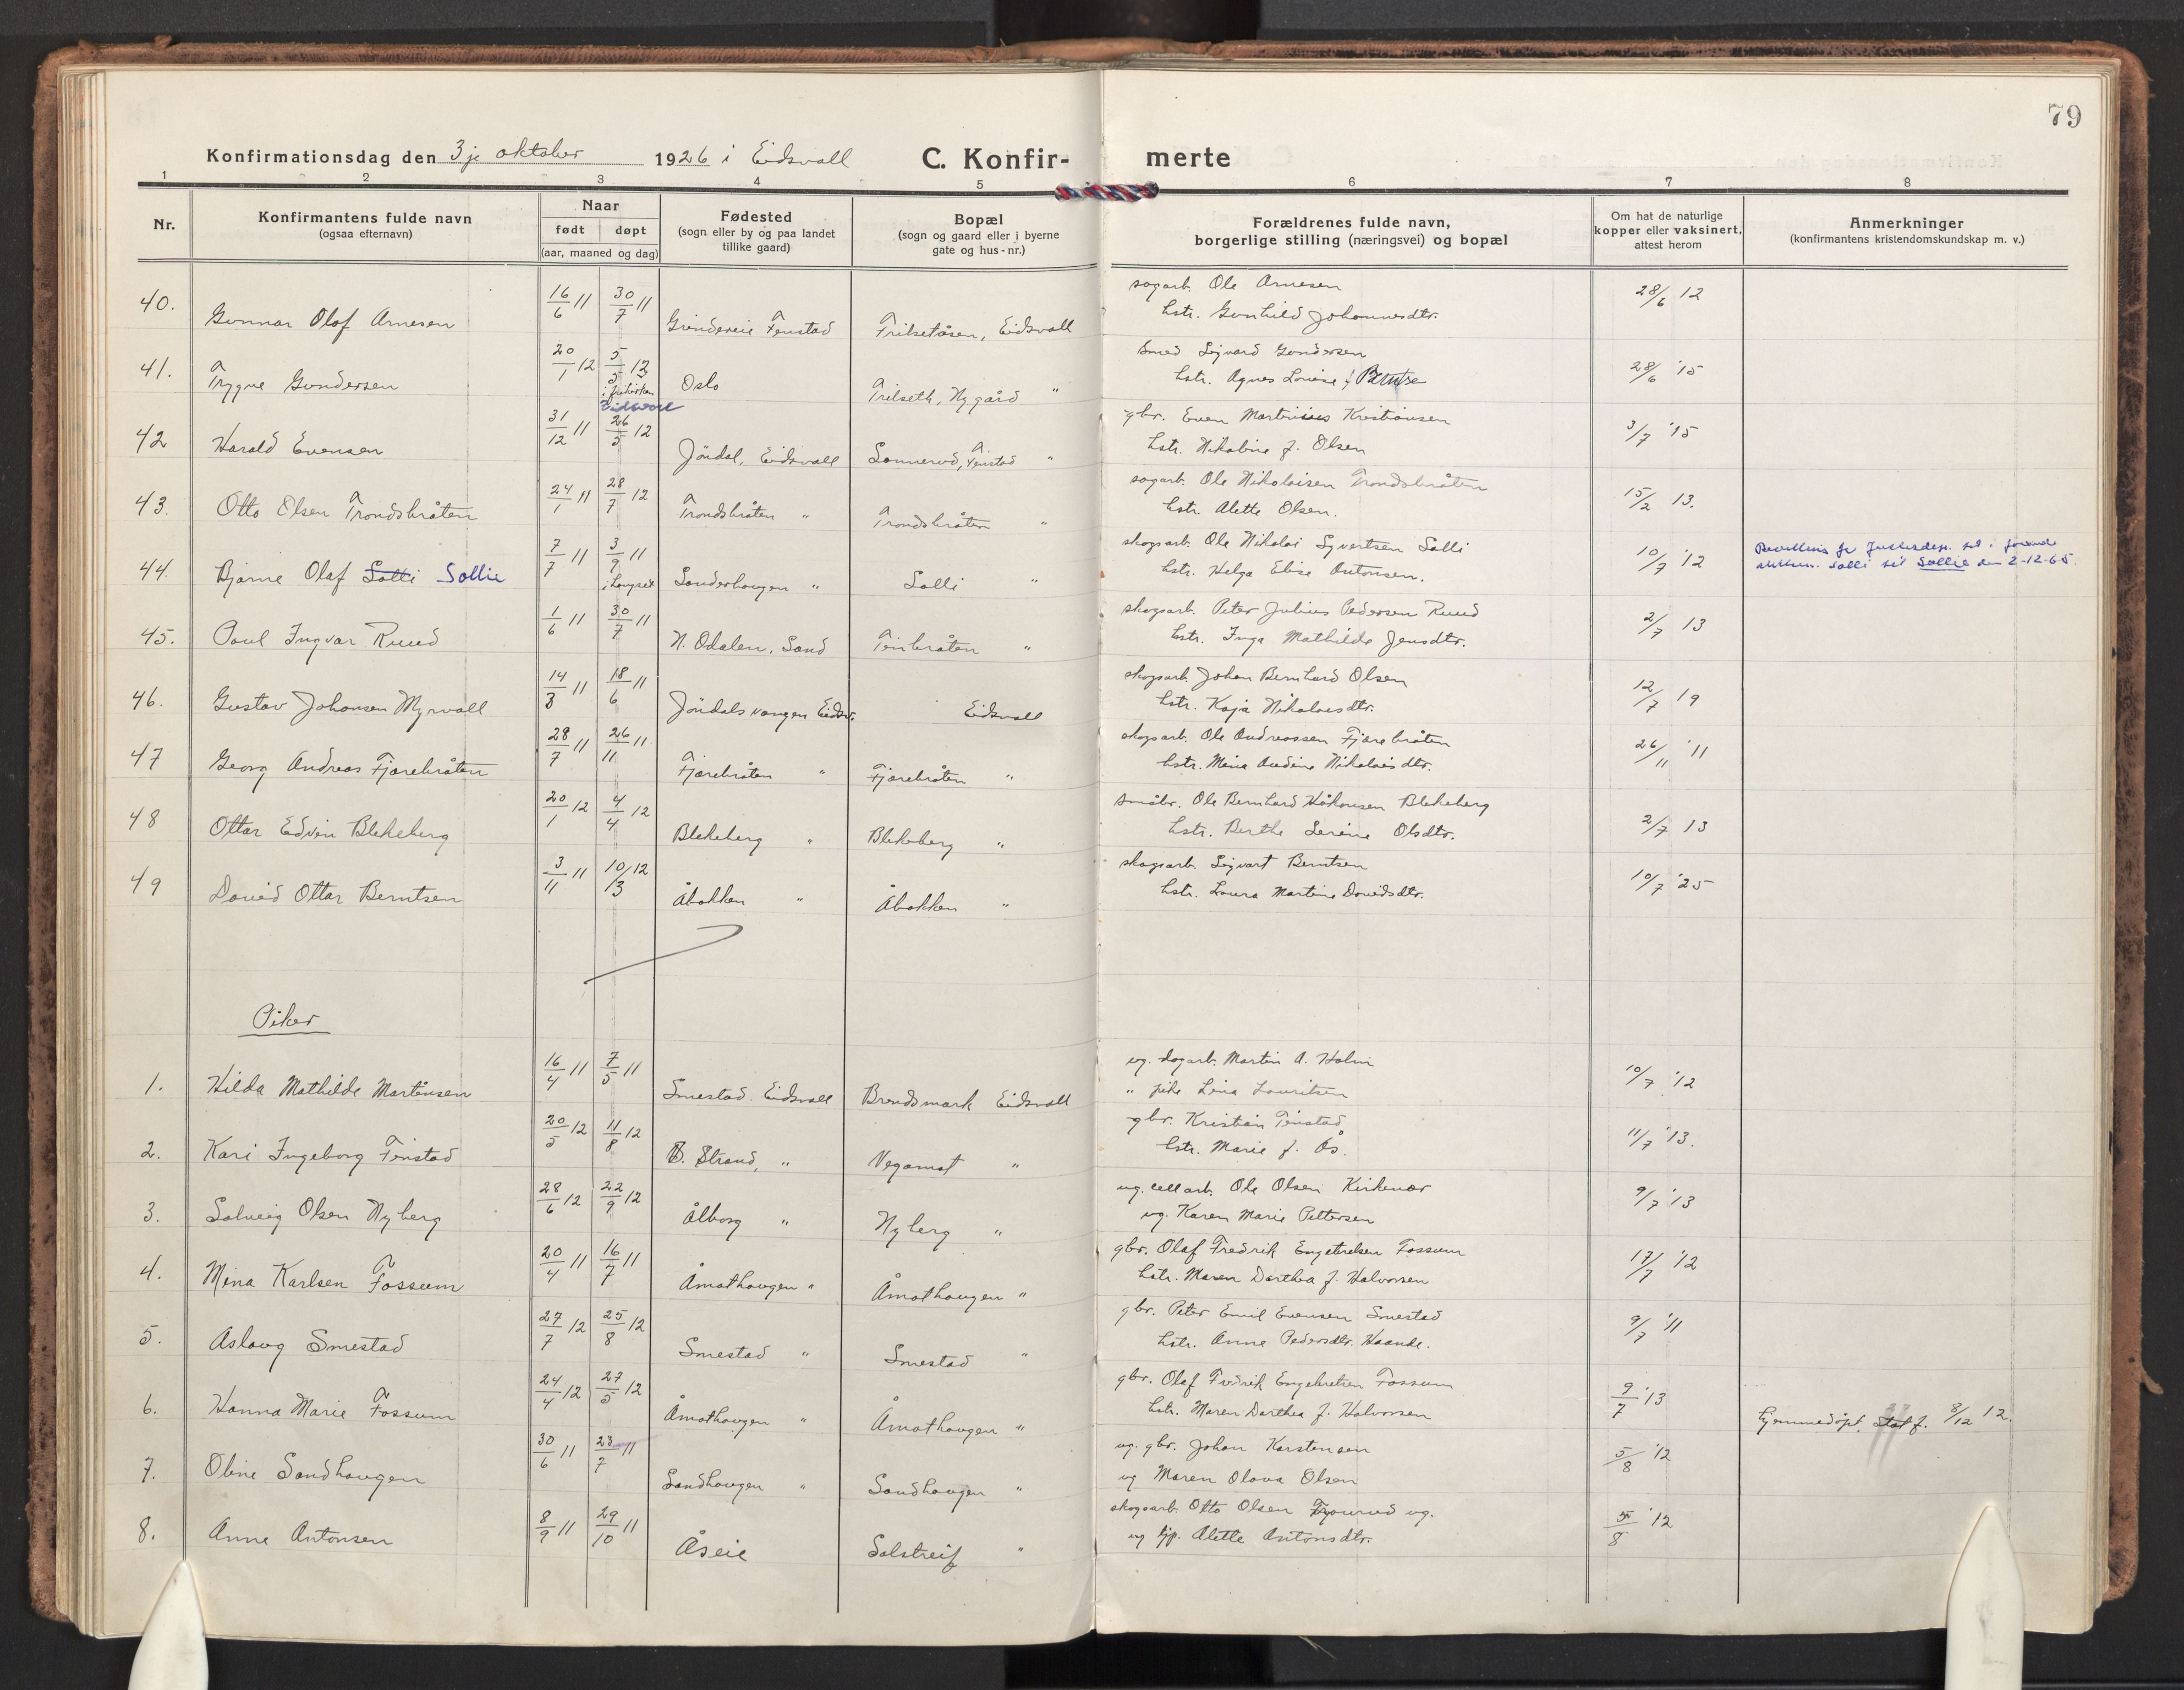 79
Konfirmationsdag den 3je oktober 1926 i Eidsvall C. Konfir- merte
1 2 3 4 5 6 7 8
Nr. Konfirmantens fulde navn (ogsaa efternavn) Naar født døpt (aar, maaned og dag) Fødested (sogn eller by og paa landet tillike gaard) Bopæl (sogn og gaard eller i byerne gate og hus-nr.) Forældrenes fulde navn, borgerlige stilling (næringsvei) og bopæl Om hat de naturlige kopper eller vaksinert, attest herom Anmerkninger (konfirmantens kristendomskundskap m. v.)
40. Gunnar Olaf Arnesen 16/6 11 30/7 11 Grindereie Fenstad Trilsetåsen, Eidsvall sagarb. Ole Arnesen
hstr. Gunhild Johannesdtr. 28/6 12
41. Trygve Gundersen 20/1 12 5/5 13 i frikirken Eidsvoll Oslo Trilseth, Nygård " Smed Sigvard Gundersen
hstr. Agnes Lovise f. Berntse 28/6 '15
42 Harald Evensen 31/12 11 26/5 12 Jöndal, Eidsvall Sannerud, Finstad " gbr. Even Martinius Kristiansen
hstr. Nikoline f. Olsen 3/7 '15
43. Otto Olsen Trondsbråten 24/1 11 28/7 12 Trondsbråten " Trondsbråten " sagarb. Ole Nikolaisen Trondsbråten
hstr. Alette Olsen. 15/2 13.
44. Bjarne Olaf Solli Sollie 7/7 11 3/9 11 i Langset Sanderhaugen " Solli " skogsarb. Ole Nikolai Syvertsen Solli
hstr. Helga Elise Antonsen. 10/7 '12 Solli til Sollie den 2-12-65
45. Paul Ingvar Ruud 1/6 11 30/7 11 N. Odalen, Sand Tinbråten " skogsarb. Peter Julius Pedersen Ruud
hstr. Inga Mathilde Jensdtr. 2/7 13
46. Gustav Johansen Myrvall 14/3 11 18/6 11 Jöndalsvangen Eidsv. Eidsvall skogsarb. Johan Bernhard Olsen
hstr. Kaja Nikolaisdtr. 12/7 19
47 Georg Andreas Fjærebråten 28/7 11 26/11 11 Fjærebråten " Fjærebråten " skogsarb. Ole Andreassen Fjærebråten
hstr. Mina Andine Nikolaisdtr. 26/11 '11
48 Ottar Edvin Blekeberg 20/1 12 4/4 12 Blekeberg " Blekeberg " småbr. Ole Bernhard Håkonsen Blekeberg
hstr. Berthe Serine Olsdtr. 2/7 13
49 David Ottar Berntsen 3/11 11 10/3 12 Åbakken " Åbakken " skogsarb. Sigvart Berntsen
hstr. Laura Martine Davidsdtr. 10/7 '25
Piker
1. Hilda Mathilde Martinsen 16/4 11 7/5 11 Smestad Eidsvall Brendsmark Eidsvall ug. dagarb. Martin A. Holm
" pike Lina Lauritsen 10/7 '12
2. Kari Ingeborg Finstad 20/5 12 11/8 12 B. Strand, " Vegamot " gbr. Kristian Finstad
hstr. Marie f. Ås. 11/7 '13.
3. Solveig Olsen Nyberg 28/6 12 22/9 12 Ålborg " Nyberg " ug. cell arb. Ole Olsen Kirkenær
ug. Karen Marie Pettersen 9/7 '13
4. Mina Karlsen Fossum 20/4 11 16/7 11 Åmothaugen " Åmothaugen " gbr. Olaf Fredrik Engebretsen Fossum
hstr. Maren Dorthea f. Halvorsen 17/7 '12
5. Aslaug Smestad 27/7 12 25/8 12 Smestad " Smestad " gbr. Peter Emil Evensen Smestad
hstr. Anne Pedersdtr. Haande. 9/7 '11
6. Hanna Marie Fossum 24/4 12 27/5 12 Åmothaugen " Åmothaugen " gbr. Olaf Fredrik Engebretsen Fossum
hstr. Maren Dorthea f. Halvorsen 9/7 '13 hjemmedöpt, stadf. 8/12 12.
7. Oline Sandhaugen 30/6 11 23/7 11 Sandhaugen " Sandhaugen " ug. gbr. Johan Karstensen
ug Maren Olava Olsen 5/8 '12
8. Anne Antonsen 8/9 11 29/10 11 Åseie Solstreif " skogsarb. Otto Olsen ug.
ug tjp. Alette Antonsdtr. 5/8 '12